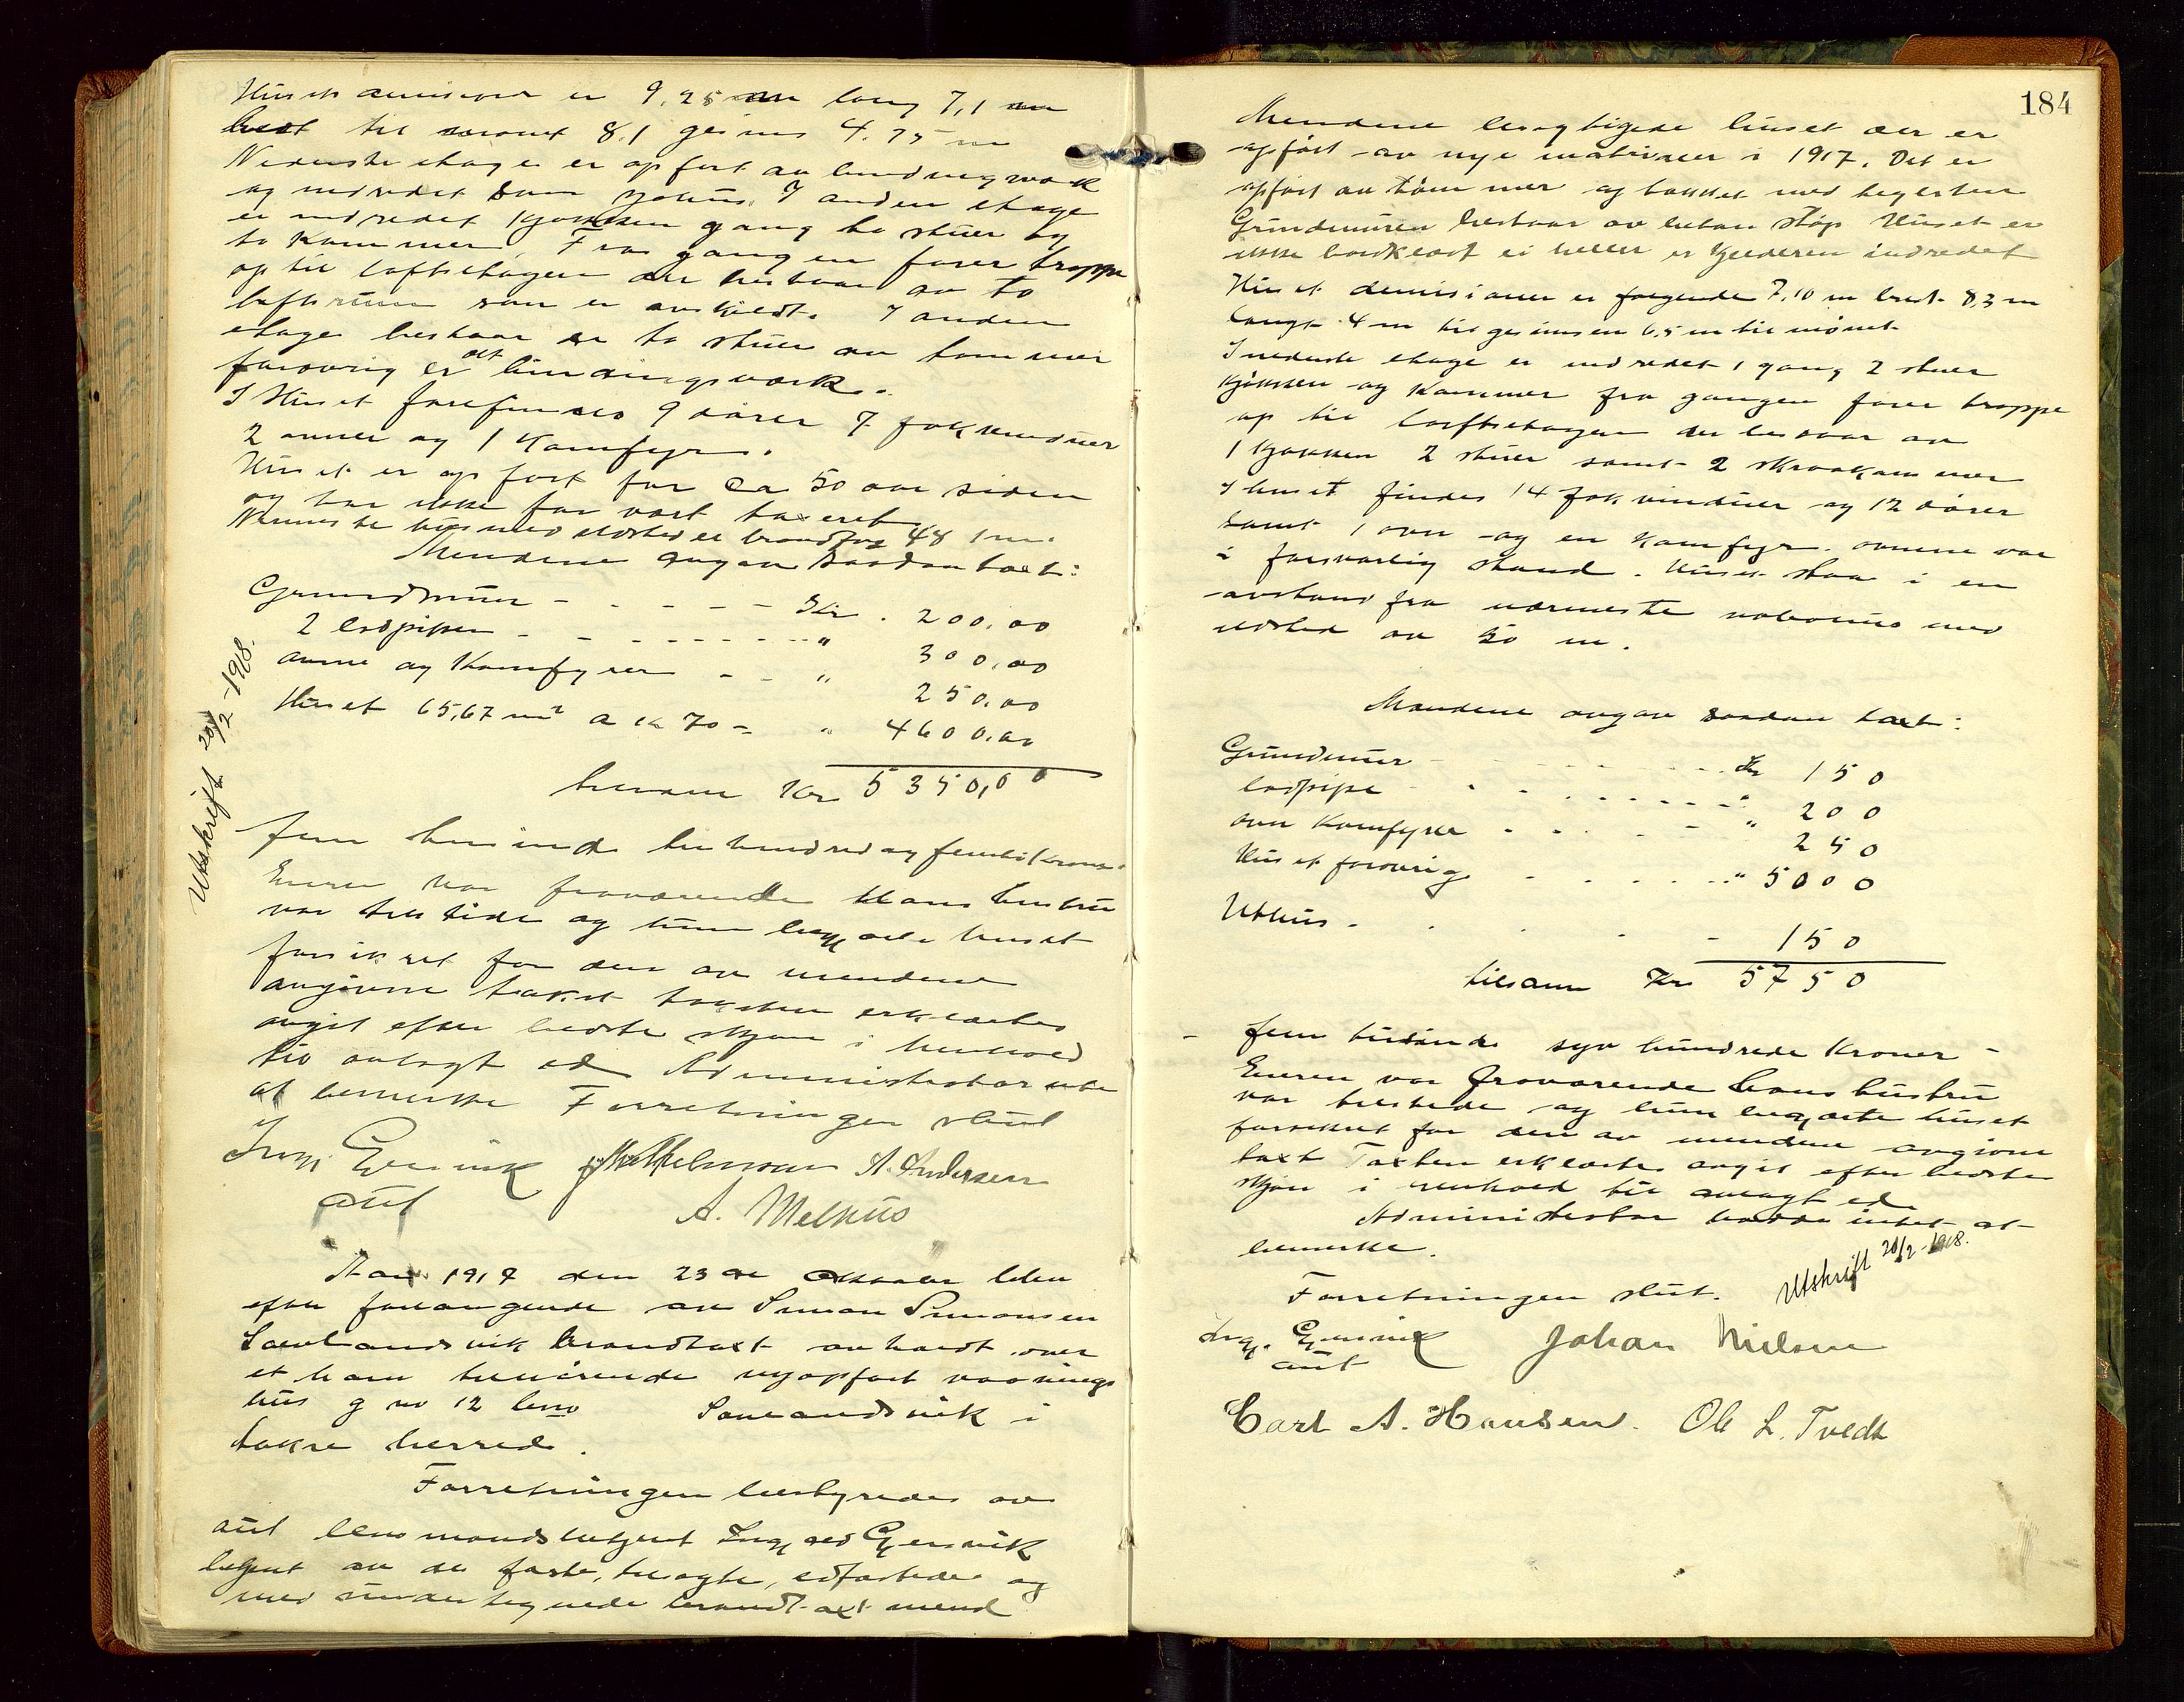 Husets demisioner er 9,25 m lang 7,1 m
bredt til mønet 8.1 gesims 4.75 m
Nederste etage er opført av bindingværk
og indredet som sjøhus. I anden etage
er indredet kjøkken gang to stuer og
to kammer. Fra gangen fører trappe
op til loftsetagen der bestaar av to
loftsrum som er avskildt. I anden
etage bestaar er to stuer av tømmer
forøvrig er det bindingsværk.
I Huset forefindes 9 dører 7 fakvinduer
2 ovner og 1 Komfyr.
Huset er opført for ca 50 aar siden
og har ikke før vært taxeret
Nærmeste hus med ildsted er brandfag 48 m.
Mendene avgav saadan taxt:
Grundmur - - - - - Kr. 200,00
2 ladpiper - - - - - - " 300,00
ovne og Komfyrer - - " 250,00
Huset 65,67 m² a kr 70 = " 4600,00
tilsam Kr 5350,00
fem tusinde tre hundred og femti kroner.
Eieren var fraværende Hans hustru
var tilstede og hun begjærte huset
forsikret for den av mendene
avgivne takst taksten erklærtes
avgit efter bedste skjøn i henhold
til avlagt ed Administrator intet
at bemerke Forretningen slut
Ing. Gjersvik A. Andersen
aut A. Melhus
Utskrift 20/2-1918.
Aar 1917 den 23de Oktober blev
efter forlangende av Simon Simonsen
Sørlandsvik brandtaxt avholdt over
et ham tilhørende nyopført vaanings
hus g no 12 bno Sørlandsvik i
Bokn herred.
Forretningen bestyredes av
aut lensmandsbetjent Ingvard Gjersvik
betjent av de faste, tilsagte, edfæstede og
med undertegnede brandtaxtmend
184
Mendene besigtigede huset der er
opført av nye matrialer i 1917. Det er
opført av tømmer og tækket med teglsten
Grundmuren bestaar av beton støp Huset er
ikke bordklædt ei heller er kjelderen indredet
Husets demisioner er følgende 7,10 m bredt 8,3 m
langt 4 m til gesimsen 6,5 m til mønet
I nederste etage er indredet 1 gang 2 stuer
kjøkken og Kammer fra gangen fører trappe
op til loftsetagen der bestaar av
1 kjøkken 2 stuer samt 2 skraakammer
I huset findes 14 fakvinduer og 12 dører
samt 1 ovn og en Komfyr. ovnene var
i forsvarlig stand. Huset staar i en
avstand fra nærmeste nabohus med
ildsted av 50 m.
Mændene avgav saadan taxt:
Grundmur - - - - - Kr 150
ladpipe - - - - - - " 200
ovn Komfyr - - - - " 250
Huset forøvrig - - - - " 5000
Uthus - - - - 150
tilsam Kr 5750
- fem tusinde syv hundrede Kroner -
Eieren var fraværende hans hustru
var tilstede og hun begjærte huset
forsikret for den av mendene avgivne
taxt Taxten erklærtes avgit efter bedste
skjøn i henhold til avlagt ed.
Administrator hadde intet at
bemerke.
Utskrift 20/2-1918.
Forretningen slut.
Ing. Gjersvik Johan Nielsen
aut
Carl A. Hansen. Ole L. Tvedt